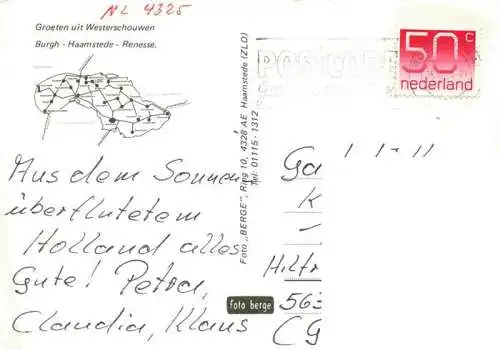 NL 4325
Groeten uit Westerschouwen
Burgh - Haamstede - Renesse.
50 c
nederland
POSTCODE
Foto „BERGE", Ring 10, 4328 AE Haamstede (ZLD)
Tel. 01115 - 1312
Aus dem Sonnen
überflutetem
Holland alles
Gute! Petra,
Claudia, Klaus
foto berge
Ga
K
Hilfr
563
(G